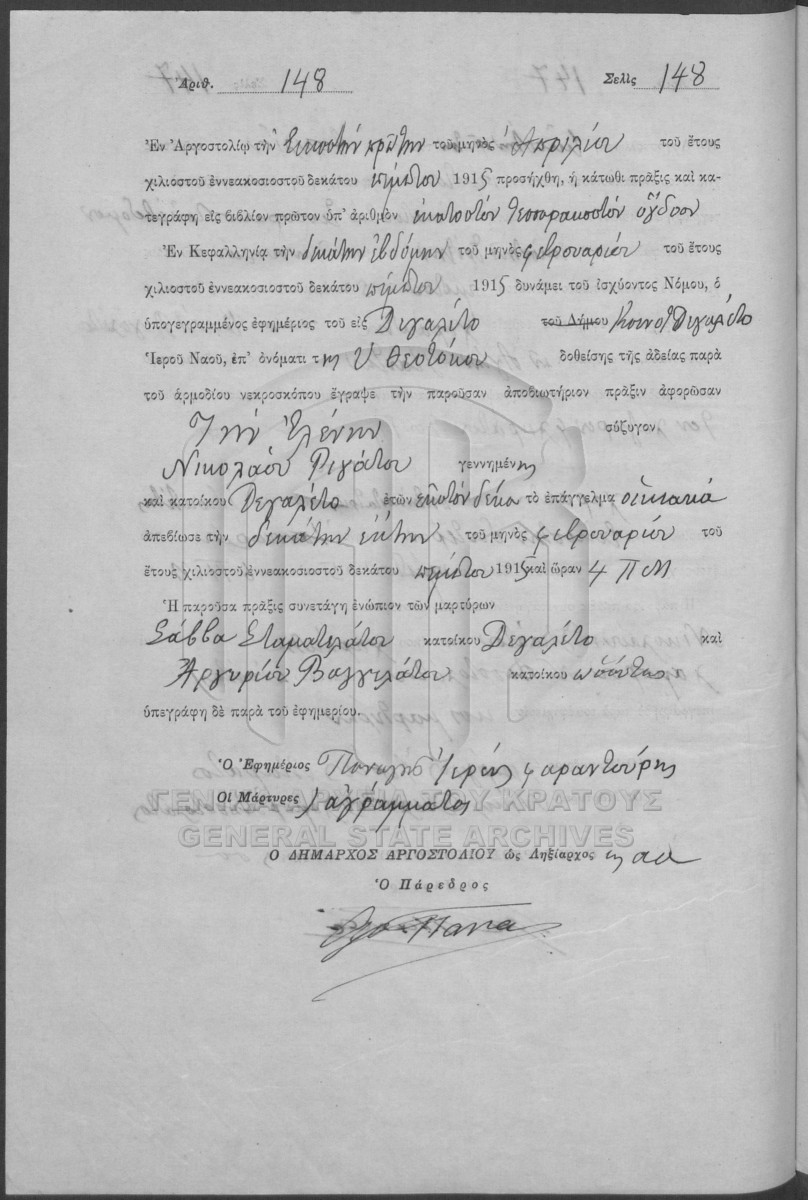 Ἀριθ. 148 Σελὶς 148
Ἐν Ἀργοστολίῳ τὴν Εἰκοστήν πρώτην τοῦ μηνὸς Ἀπριλίου τοῦ ἔτους
χιλιοστοῦ ἐννεακοσιοστοῦ δεκάτου πέμπτου 1915 προσήχθη, ἡ κάτωθι πρᾶξις καὶ κα-
τεγράφη εἰς βιβλίον πρῶτον ὑπ' ἀριθμὸν ἑκατοστόν τεσσαρακοστόν ὄγδοον
Ἐν Κεφαλληνίᾳ τὴν δεκάτην ἑβδόμην τοῦ μηνὸς φεβρουαρίου τοῦ ἔτους
χιλιοστοῦ ἐννεακοσιοστοῦ δεκάτου πέμπτου 1915 δυνάμει τοῦ ἰσχύοντος Νόμου, ὁ
ὑπογεγραμμένος ἐφημέριος τοῦ εἰς Διγαλέτο τοῦ Δήμου Κοινοτ Διγαλέτο
Ἱεροῦ Ναοῦ, ἐπ' ὀνόματι της Υ Θεοτόκου δοθείσης τῆς ἀδείας παρὰ
τοῦ ἁρμοδίου νεκροσκόπου ἔγραψε τὴν παροῦσαν ἀποβιωτήριον πρᾶξιν ἀφορῶσαν
Τήν Ἑλένην σύζυγον
Νικολάου Ριγάτου γεννημένης
καὶ κατοίκου Δεγαλέτο ἐτῶν εκατόν δέκα τὸ ἐπάγγελμα οἰκιακά
ἀπεβίωσε τὴν δεκάτην ἕκτην τοῦ μηνὸς φεβρουαρίου τοῦ
ἔτους χιλιοστοῦ ἐννεακοσιοστοῦ δεκάτου πέμπτου 1915 καὶ ὥραν 4 Π Μ
Ἡ παροῦσα πρᾶξις συνετάγη ἐνώπιον τῶν μαρτύρων
Σάββα Σταματελάτου κατοίκου Δεγαλέτο καὶ
Ἀργυρίου Βαγγελάτου κατοίκου
ὑπεγράφη δὲ παρὰ τοῦ ἐφημερίου.
Ὁ Ἐφημέριος Παναγης Ἱερεύς φαραντούρης
Οἱ Μάρτυρες ἀγράμματοι
ΓΕΝΙΚΑ ΑΡΧΕΙΑ ΤΟΥ ΚΡΑΤΟΥΣ
GENERAL STATE ARCHIVES
Ο ΔΗΜΑΡΧΟΣ ΑΡΓΟΣΤΟΛΙΟΥ ὡς Ληξίαρχος
Ὁ Πάρεδρος